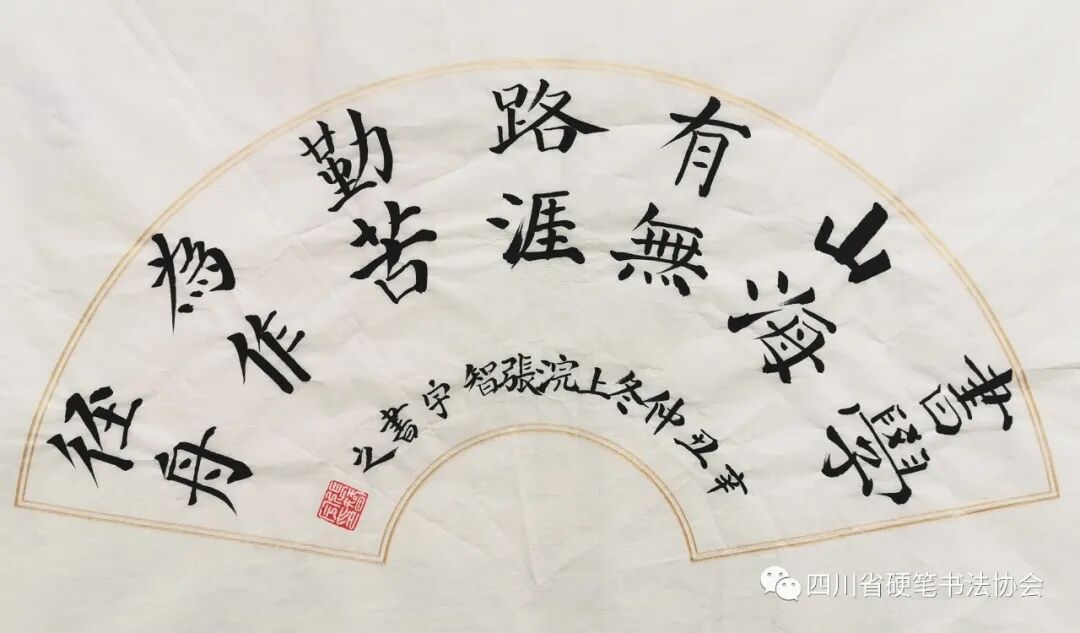 書山有路勤為徑
學海無涯苦作舟
辛丑仲冬上浣張智宇書之
四川省硬笔书法协会